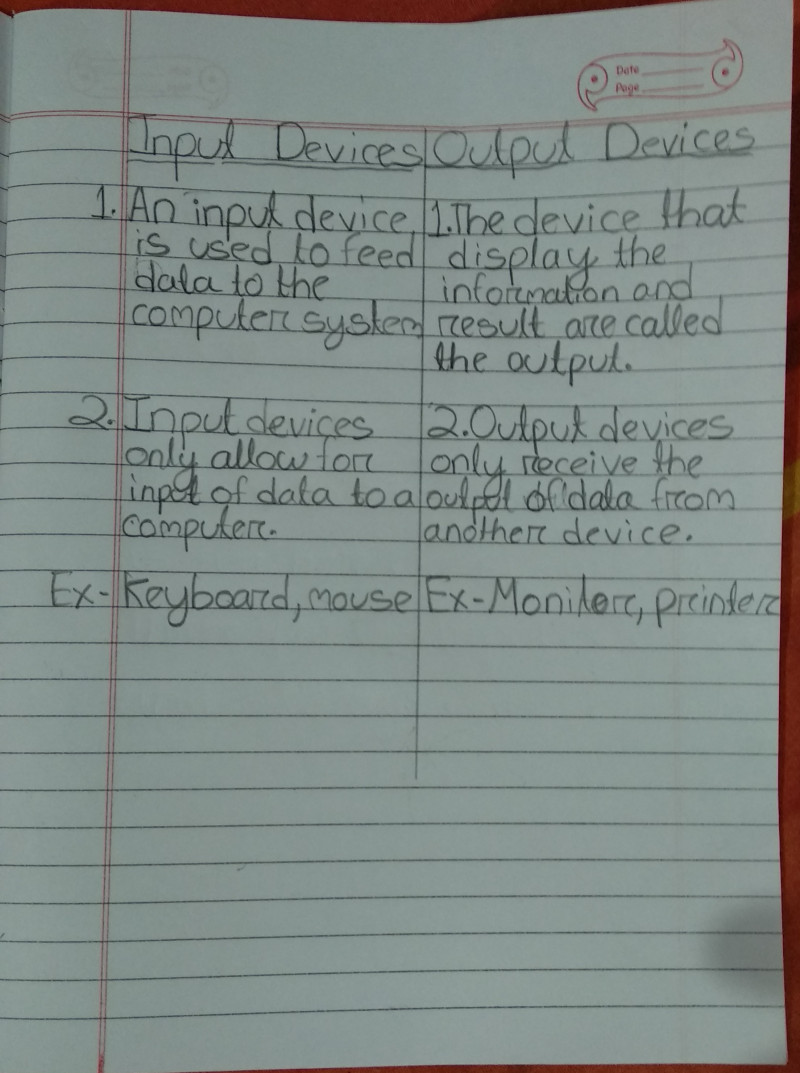 Date
Page
Input Devices
1. An input device
is used to feed
data to the
computer system
2. Input devices
only allow for
input of data to a
computer.
Ex- Keyboard, mouse
Output Devices
1. The device that
display the
information and
result are called
the output.
2. Output devices
only receive the
output of data from
another device.
Ex- Moniter, printer